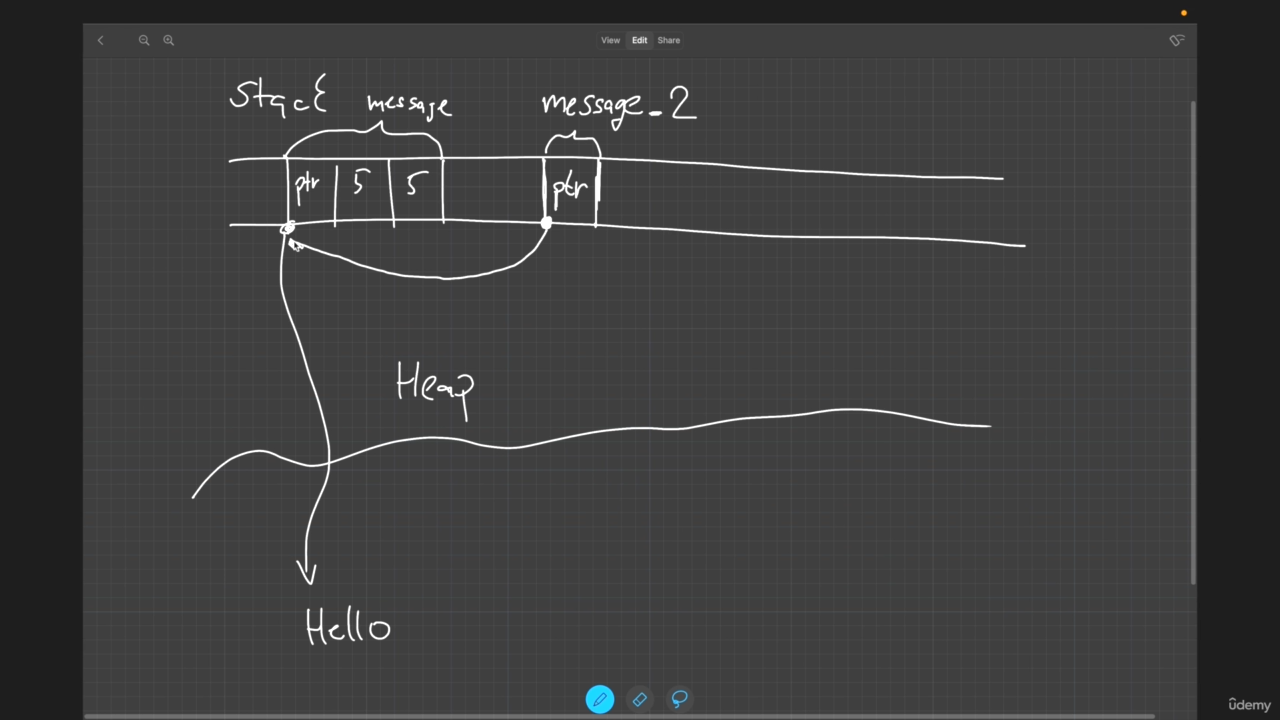 View Edit Share
Stack message message_2
ptr 5 5 ptr
Heap
Hello
ûdemy